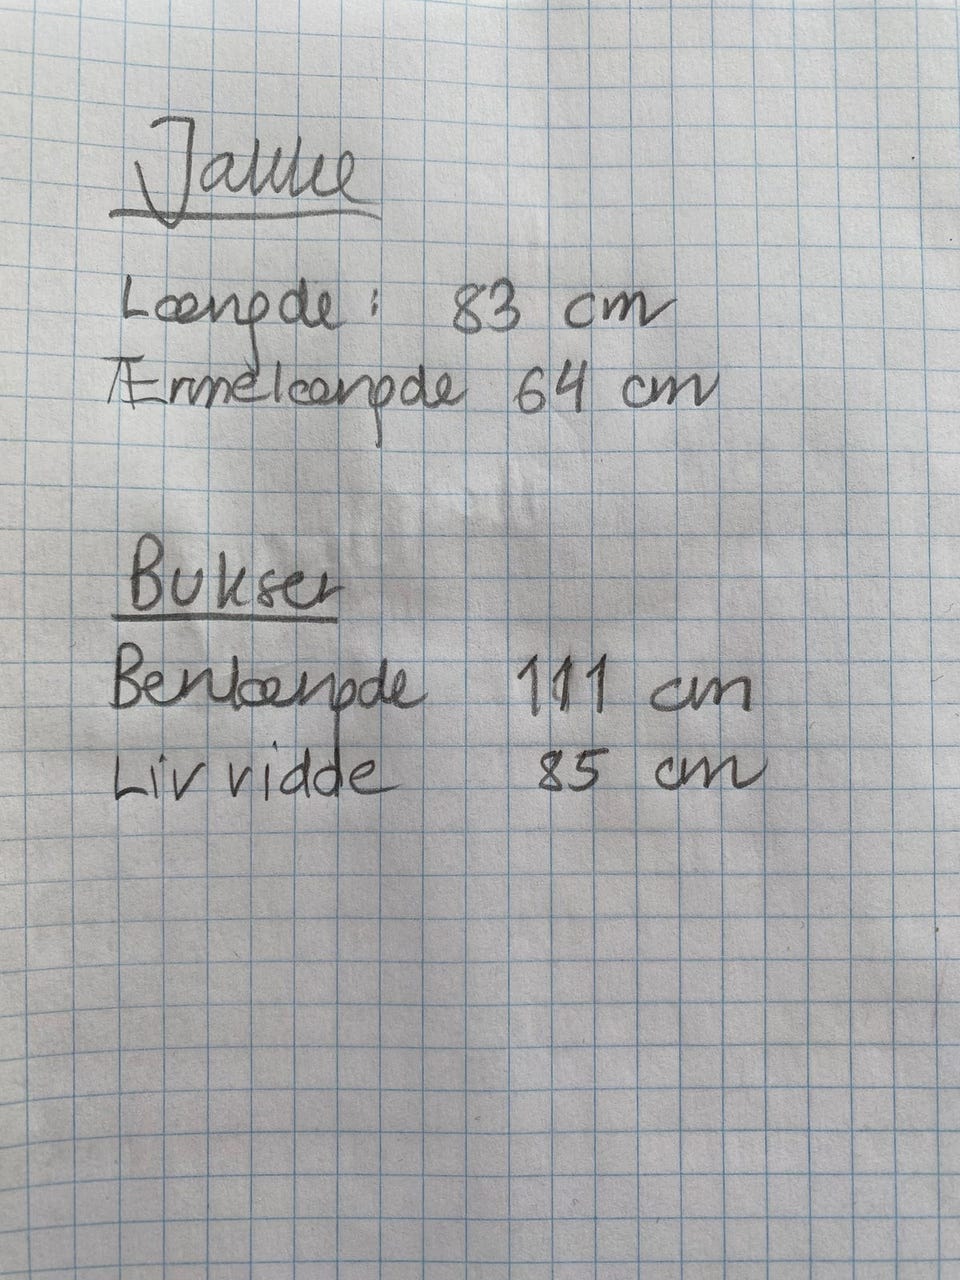 Jakke
Længde: 83 cm
Ærmelængde 64 cm
Bukser
Benlængde 111 cm
Liv vidde 85 cm